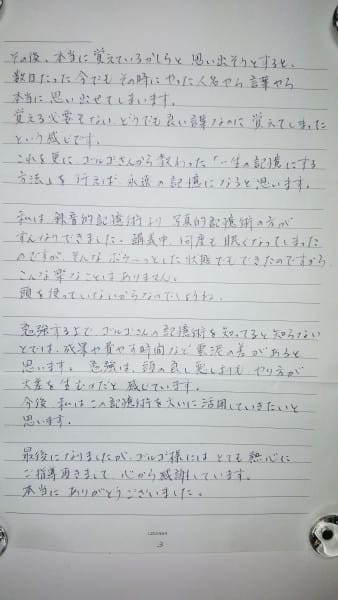 その後、本当に覚えているかしらと思い出そうとすると、
数日たった今でもその時にやった人名やら言葉やら
本当に思い出せてしまいます。
覚える必要もないどうでも良い言葉なのに覚えてしまった
という感じです。
これを更に、ゴルゴさんから教わった「一生の記憶にする
方法」を行えば、永遠の記憶になると思います。
私は録音的記憶術より写真的記憶術の方が
すんなりできました。講義中、何度も眠くなってしまった
のですが、そんなボケーっとした状態でもできたのですから
こんな楽なことはありません。
頭を使っていないからなのでしょうね。
勉強する上で、ゴルゴさんの記憶術を知ってると知らない
とでは、成果や費やす時間など雲泥の差があると
思います。勉強は、頭の良し悪しよりも やり方が
大差を生むのだと感じています。
今後、私はこの記憶術を大いに活用していきたいと
思います。
最後になりましたが、ゴルゴ様にはとても熱心に
ご指導頂きまして、心から感謝しています。
本当に ありがとうございました。
3